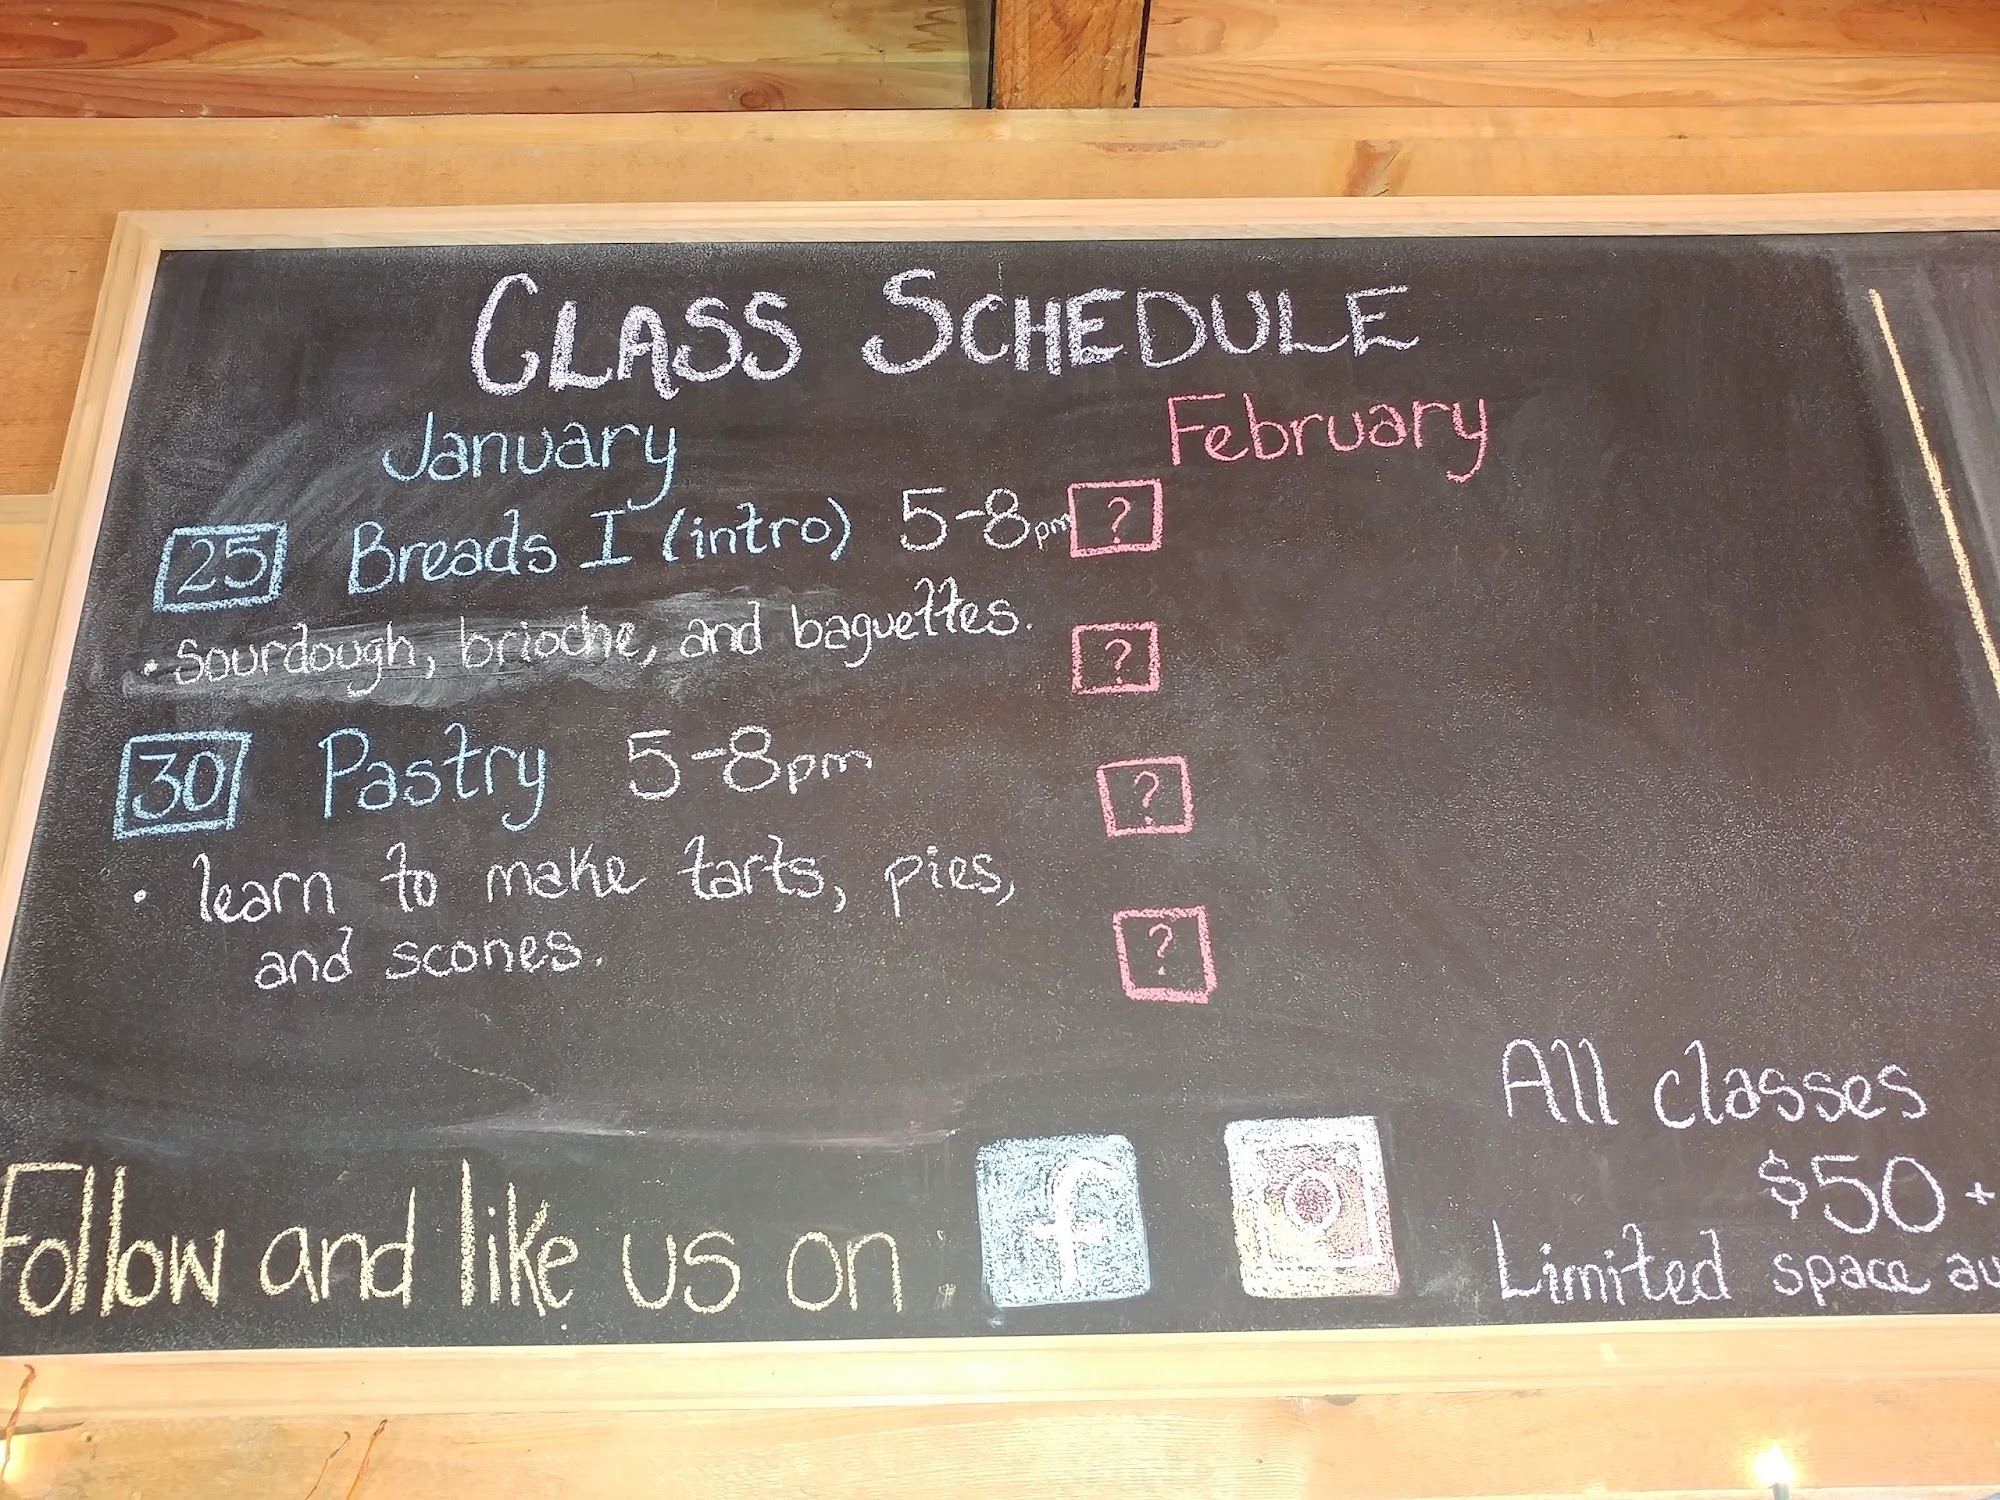 CLASS SCHEDULE
January
25 Breads I (intro) 5-8pm
• sourdough, brioche, and baguettes.
30 Pastry 5-8pm
• learn to make tarts, pies,
and scones.
February
?
?
?
?
Follow and like us on f
All classes
$50+
Limited space